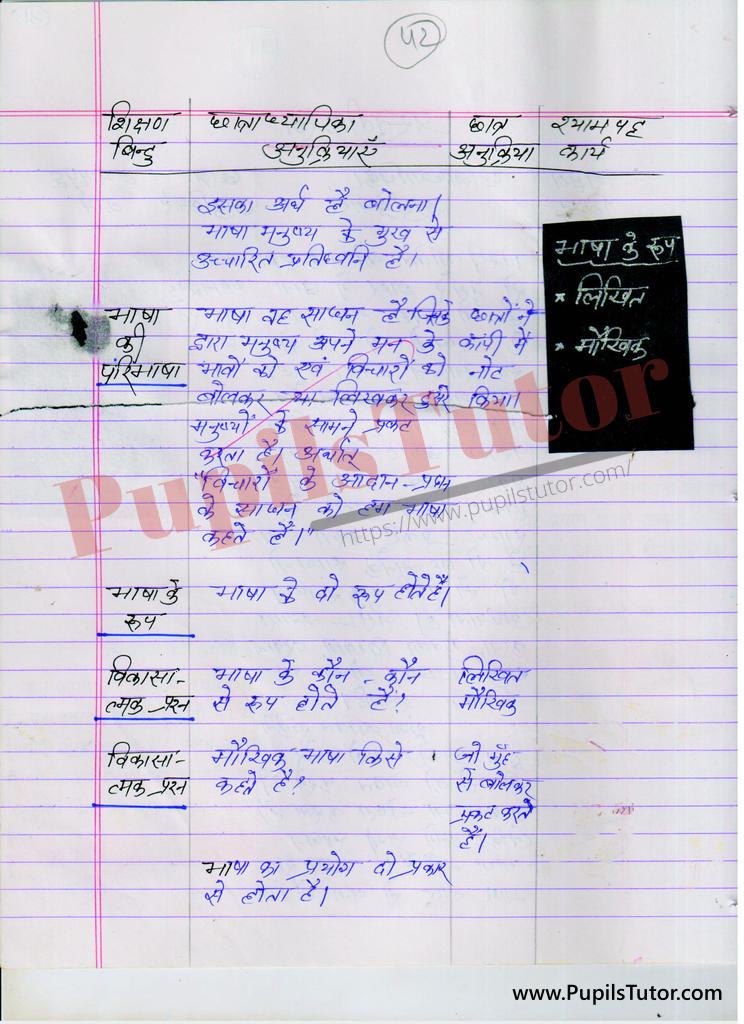 ५२
शिक्षण बिन्दु
छात्राध्यापिका अनुक्रियाएँ
छात्र अनुक्रिया
श्यामपट्ट कार्य
इसका अर्थ है बोलना।
भाषा मनुष्य के मुख से
उच्चारित प्रतिध्वनि है।
भाषा के रूप
* लिखित
* मौखिक
भाषा
की
परिभाषा
भाषा वह साधन है जिसके
द्वारा मनुष्य अपने मन के
भावों को एवं विचारों को
बोलकर या लिखकर दुसरे
मनुष्यों के सामने प्रकट
करता है। अर्थात्
"विचारों के आदान-प्रदान
के साधन को हम भाषा
कहते हैं।"
छात्रों ने
कापी में
नोट
किया।
भाषा के
रूप
भाषा के दो रूप होते हैं।
विकासा-
त्मक प्रश्न
भाषा के कौन-कौन
से रूप होते हैं?
लिखित
मौखिक
विकासा-
त्मक प्रश्न
मौखिक भाषा किसे
कहते हैं?
जो मुँह
से बोलकर
प्रकट करते
हैं।
भाषा का प्रयोग दो प्रकार
से होता है।
PupilsTutor
https://www.pupilstutor.com/
www.PupilsTutor.com